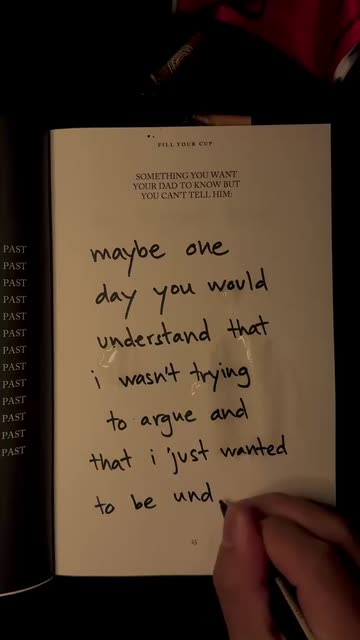 FILL YOUR CUP
SOMETHING YOU WANT
YOUR DAD TO KNOW BUT
YOU CAN'T TELL HIM:
maybe one
day you would
understand that
i wasn't trying
to argue and
that i just wanted
to be und
25
PAST
PAST
PAST
PAST
PAST
PAST
PAST
PAST
PAST
PAST
PAST
PAST
PAST